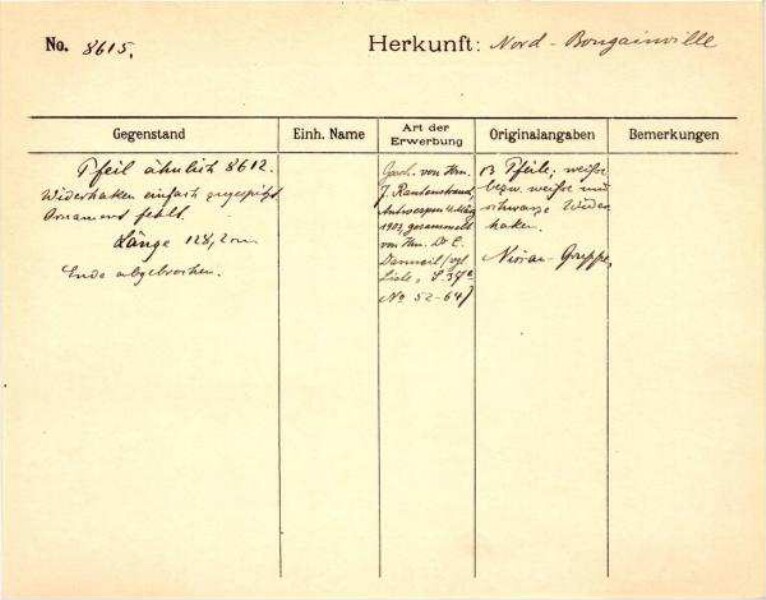 No. 8615.
Herkunft: Nord-Bougainville
Gegenstand
Einh. Name
Art der Erwerbung
Originalangaben
Bemerkungen
Pfeil ähnlich 8612.
Widerhaken einfach zugespitzt.
Ornament fehlt.
Länge 128,2 cm.
Ende abgebrochen.
Gesch. von Hrn.
J.
Antwerpen März
1903, gesammelt
von Hrn. Dr. E.
/vgl.
Liste, S.
No 52-64/
13 Pfeile; weiße
bezw. weiße und
schwarze Wider
haken.
Nissan-Gruppe,